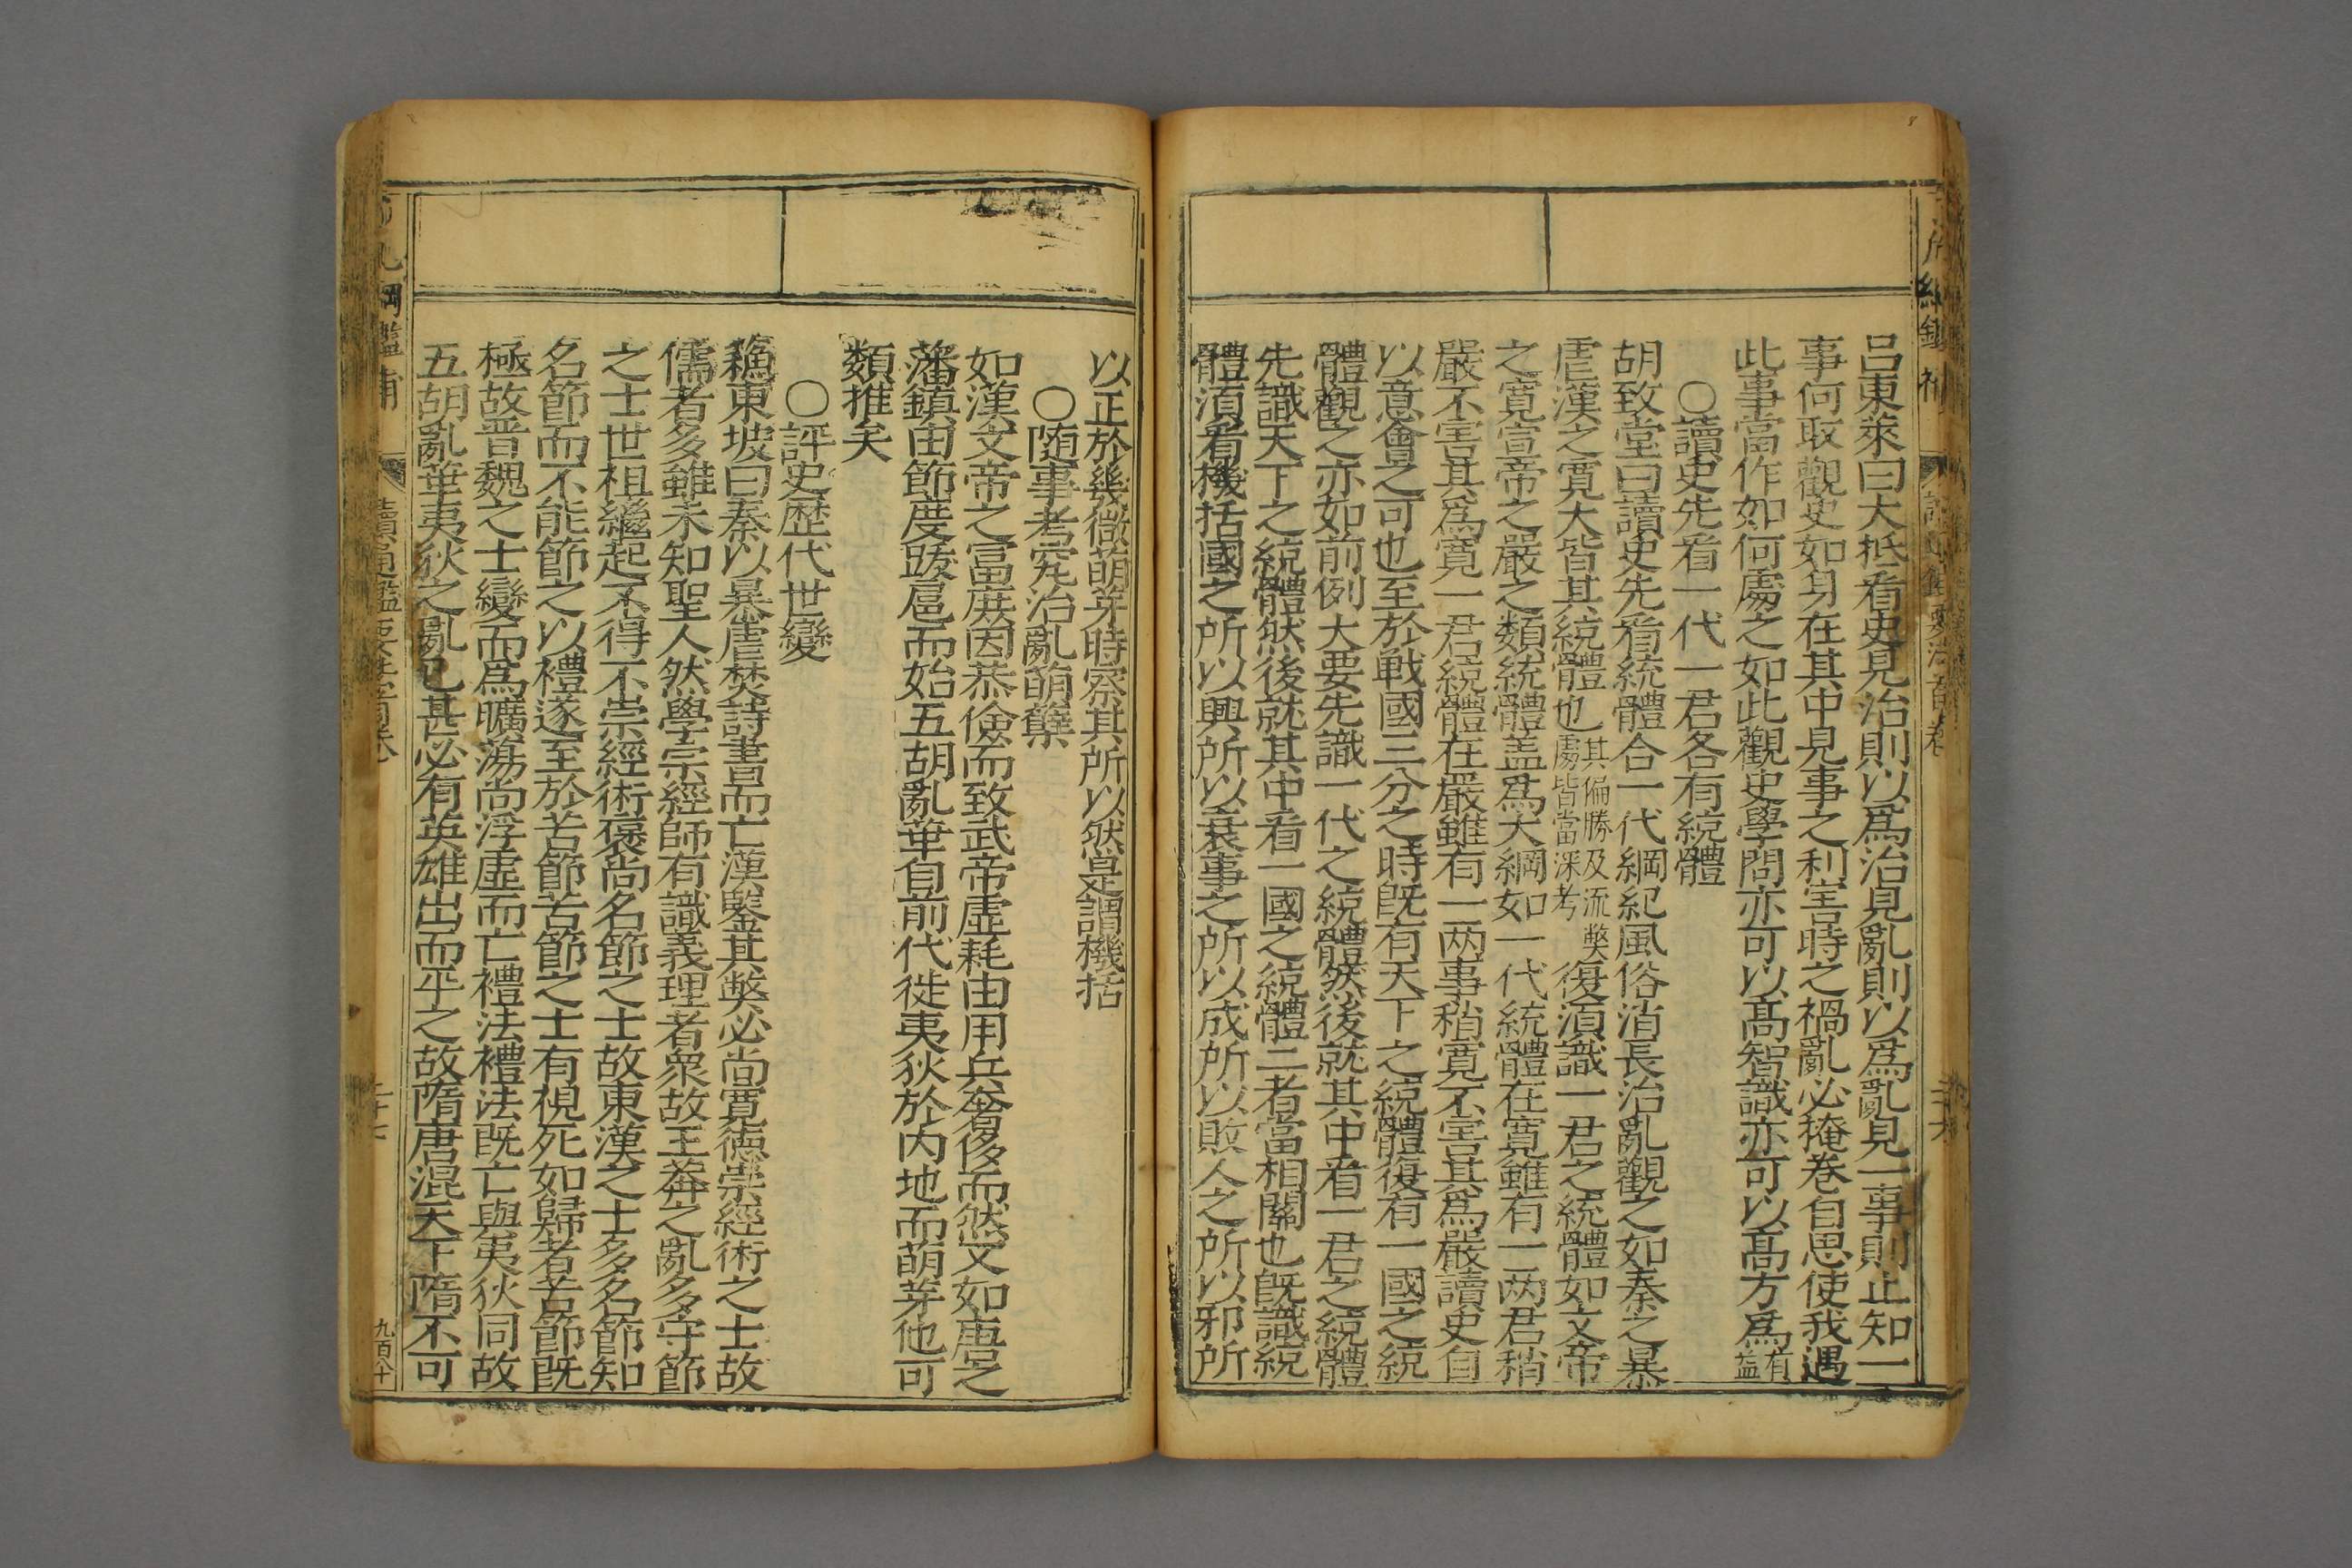 呂東萊曰大抵看史見治則以爲治見亂則以爲亂見一事則止知一
事何取觀史如身在其中見事之利害時之禍亂必掩卷自思使我遇
此事當作如何處之如此觀史學問亦可以高智識亦可以高方爲有益
○讀史先看一代一君各有統體
胡致堂曰讀史先看統體合一代綱紀風俗消長治亂觀之如秦之暴
虐漢之寬大皆其統體也其偏勝及流弊處皆當深考復須識一君之統體如文帝
之寬宣帝之嚴之類統體盖爲大綱如一代統體在寬雖有一两君稍
嚴不害其爲寬一君統體在嚴雖有一两事稍寬不害其爲嚴讀史自
以意會之可也至於戰國三分之時旣有天下之統體復有一國之統
體觀之亦如前例大要先識一代之統體然後就其中看一君之統體
先識天下之統體然後就其中看一國之統體二者當相關也旣識統
體須看機括國之所以興所以衰事之所以成所以敗人之所以邪所
以正於幾微萌芽時察其所以然是謂機括
○随事考究治亂萌蘖
如漢文帝之富庶因恭儉而致武帝虛耗由用兵奢侈而然又如唐之
藩鎮由節度跋扈而始五胡亂華自前代徙夷狄於内地而萌芽他可
類推矣
○評史歷代世變
穌東坡曰秦以暴虐焚詩書而亡漢鑒其弊必尚寬德崇經術之士故
儒者多雖未知聖人然學宗經師有識義理者衆故王莽之亂多守節
之士世祖繼起不得不崇經術褒尚名節之士故東漢之士多名節知
名節而不能節之以禮遂至於苦節苦節之士有視死如歸者苦節旣
極故晋魏之士變而爲曠蕩尚浮虛而亡禮法禮法旣亡與夷狄同故
五胡亂華夷狄之亂已甚必有英雄出而平之故隋唐混天下隋不可
綱鑑
九百八十